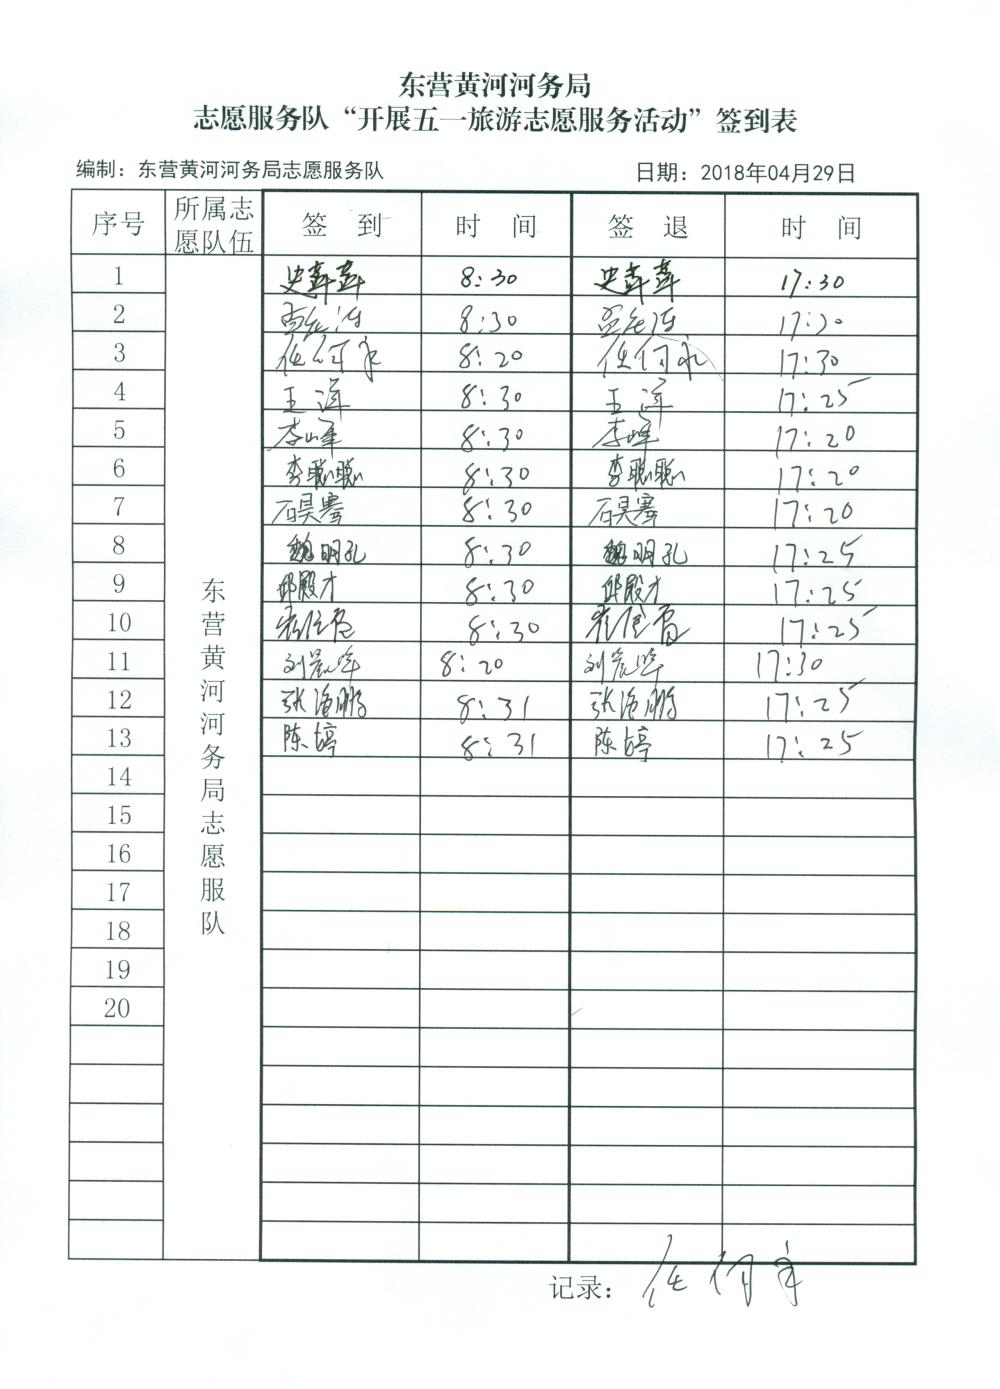 东营黄河河务局
志愿服务队“开展五一旅游志愿服务活动”签到表
编制：东营黄河河务局志愿服务队 日期：2018年04月29日
序号 所属志愿队伍 签 到 时 间 签 退 时 间
东营黄河河务局志愿服队
1 8:30 17:30
2 8:30 17:30
3 8:20 17:30
4 王 8:30 王 17:25
5 李峰 8:30 李峰 17:20
6 李聪聪 8:30 李聪聪 17:20
7 石昊骞 8:30 石昊骞 17:20
8 魏明孔 8:30 魏明孔 17:25
9 邱殿才 8:30 邱殿才 17:25
10 8:30 17:25
11 刘 8:20 刘 17:30
12 张海鹏 8:31 张海鹏 17:25
13 陈婷 8:31 陈婷 17:25
14
15
16
17
18
19
20
记录：